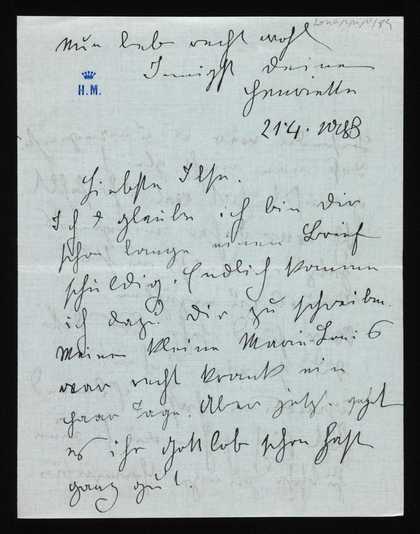 Nun leb recht wohl
Innigst Deine
Henriette
H.M.
21.4.
Liebste Ilse.
Ich glaube ich bin Dir
schon lange einen Brief
schuldig. Endlich komme
ich dazu Dir zu schreiben.
Meine kleine Marie Louis
war recht krank ein
paar Tage. Aber jetzt geht
es ihr Gottlob schon fast
ganz gut.